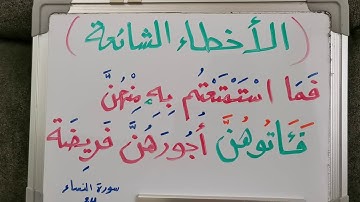 ( الأخطاء الشائعة )
فَمَا اسْتَمْتَعْتُم بِهِ مِنْهُنَّ
فَـَٔاتُوهُنَّ أُجُورَهُنَّ فَرِيضَة
سورة النساء